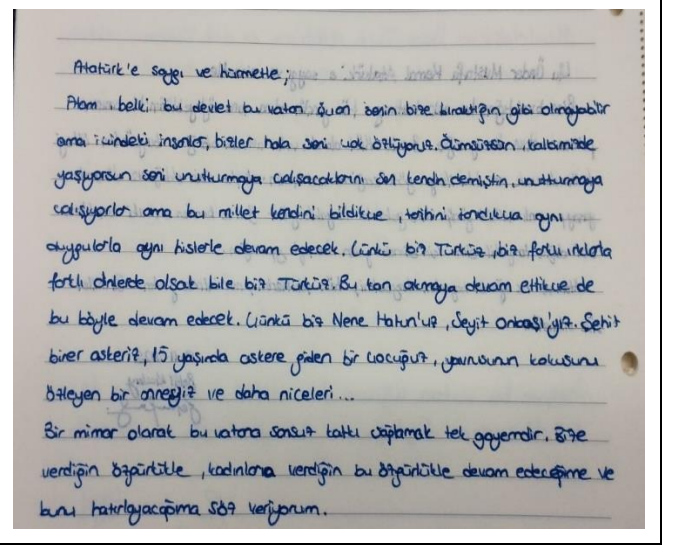 Atatürk'e saygı ve hürmetle;
Atam belki bu devlet bu vatan şuan senin bize bıraktığın gibi olmayabilir
ama içindeki insanlar, bizler hala seni çok özlüyoruz. Ölümsüzsün, kalbimizde
yaşıyorsun seni unutturmaya çalışacaklarını sen kendin demiştin, unutturmaya
çalışıyorlar ama bu millet kendini bildikçe, tarihini tanıdıkça aynı
duygularla aynı hislerle devam edecek. Çünkü biz Türküz, biz farklı ırklarla
farklı dinlerde olsak bile biz Türküz. Bu kan akmaya devam ettikçe de
bu böyle devam edecek. Çünkü biz Nene Hatun'uz, Seyit Onbaşı'yız. Şehit
birer askeriz, 15 yaşında askere giden bir çocuğuz, yavrusunun kokusunu
özleyen bir anneyiz ve daha niceleri...
Bir mimar olarak bu vatana sonsuz katkı sağlamak tek gayemdir. Bize
verdiğin özgürlükle, kadınlara verdiğin bu özgürlükle devam edeceğime ve
bunu hatırlayacağıma söz veriyorum.